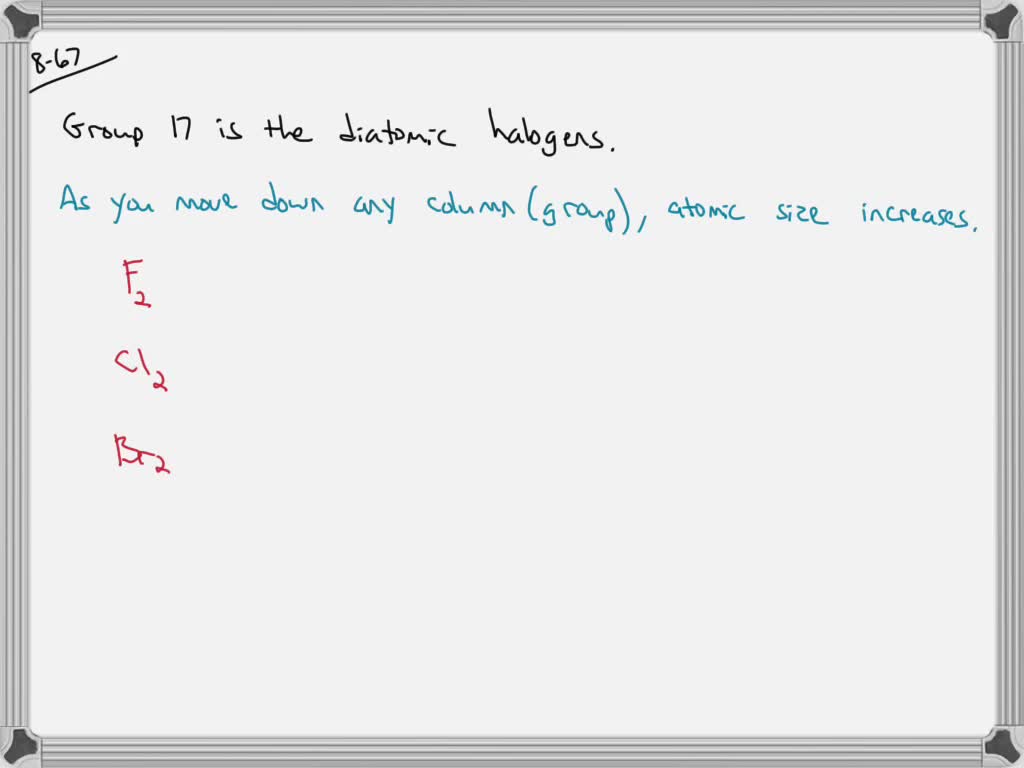 8-67
Group 17 is the diatomic halogens.
As you move down any column (group), atomic size increases.
F2
Cl2
Br2